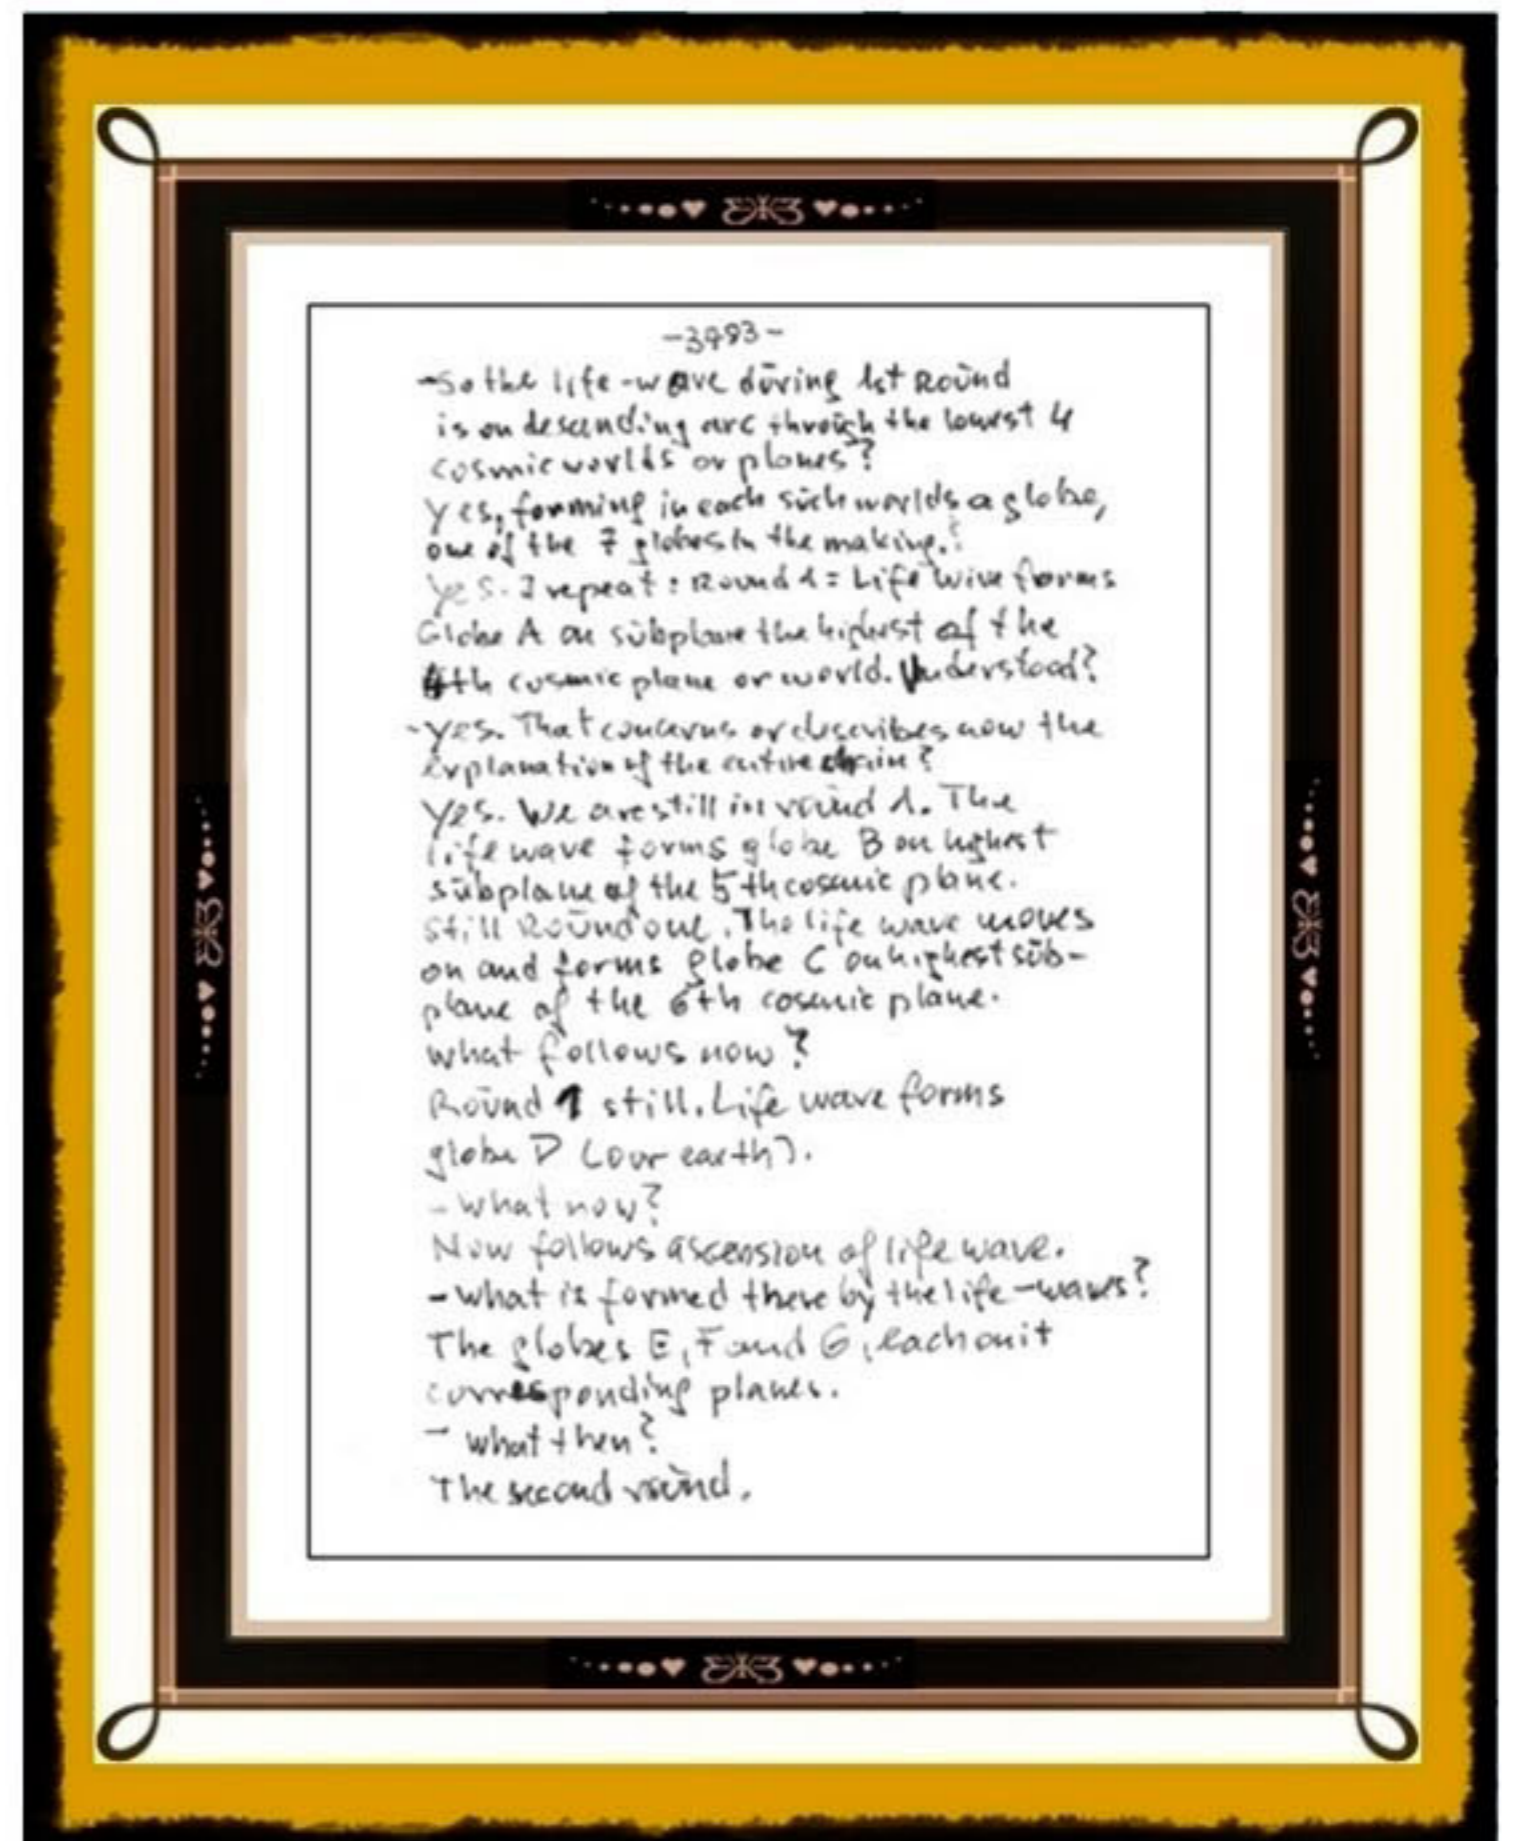 -3483-
-So the life-wave dūring 1st Roūnd
is on descending arc throūgh the lowest 4
cosmic worlds or planes?
Yes, forming in each sūch worlds a globe,
one of the 7 globes in the making.
Yes. I repeat: Round 1 = Life wave forms
Globe A on sūbplane the highest of the
4th cosmic plane or world. Understood?
-Yes. That concerns or describes now the
explanation of the entire chain?
Yes. We are still in roūnd 1. The
life wave forms globe B on highest
sūbplane of the 5th cosmic plane.
Still Roūnd one. The life wave moves
on and forms globe C on highest sūb-
plane of the 6th cosmic plane.
what follows now?
Roūnd 1 still. Life wave forms
globe D (our earth).
- what now?
Now follows ascension of life wave.
- what is formed there by the life-waves?
The globes E, F and G, each on it
corresponding planes.
- what then?
The second roūnd.